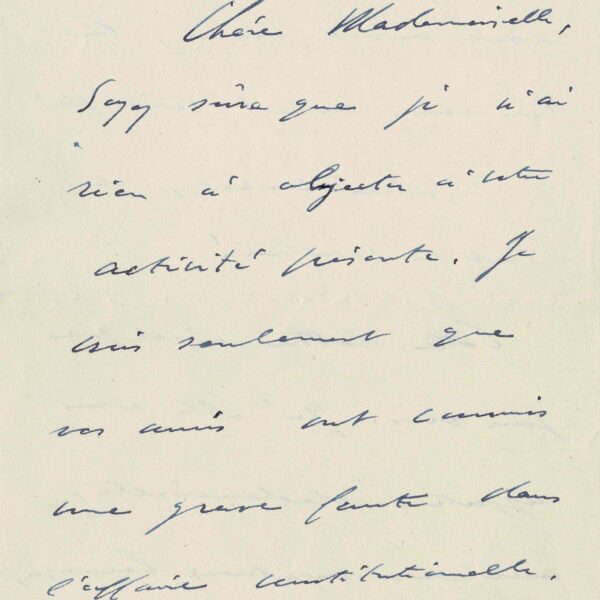 Chère Mademoiselle,
Soyez sûre que je n'ai
rien à objecter à votre
activité présente. Je
crois seulement que
vos amis ont commis
une grave faute dans
l'affaire constitutionnelle.